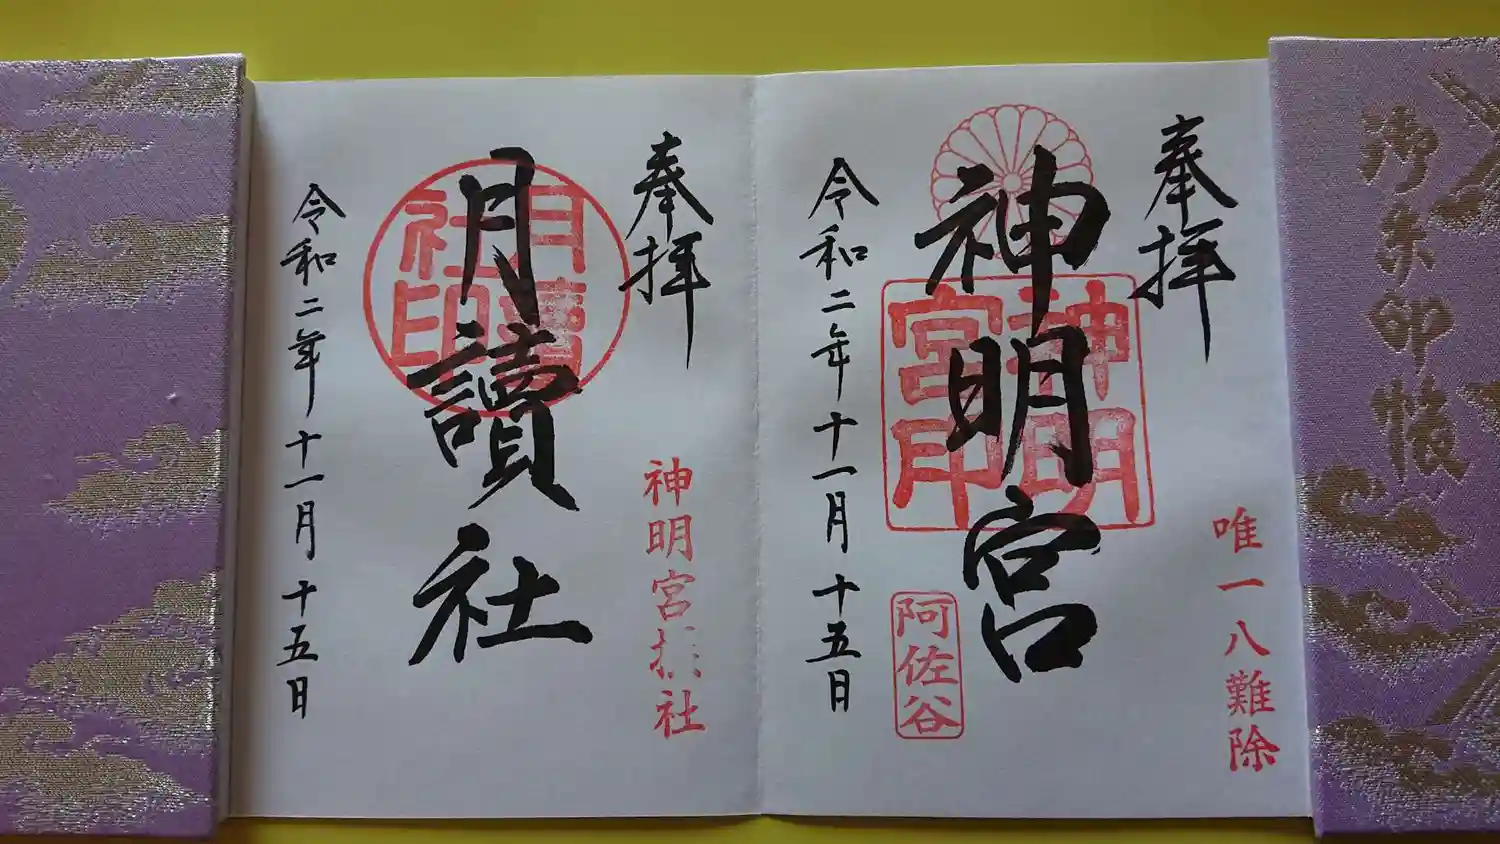 御朱印帳
奉拝
唯一八難除
神明宮
神明宮印
阿佐谷
令和二年十一月十五日
奉拝
神明宮摂社
月讀社
月讀社印
令和二年十一月十五日